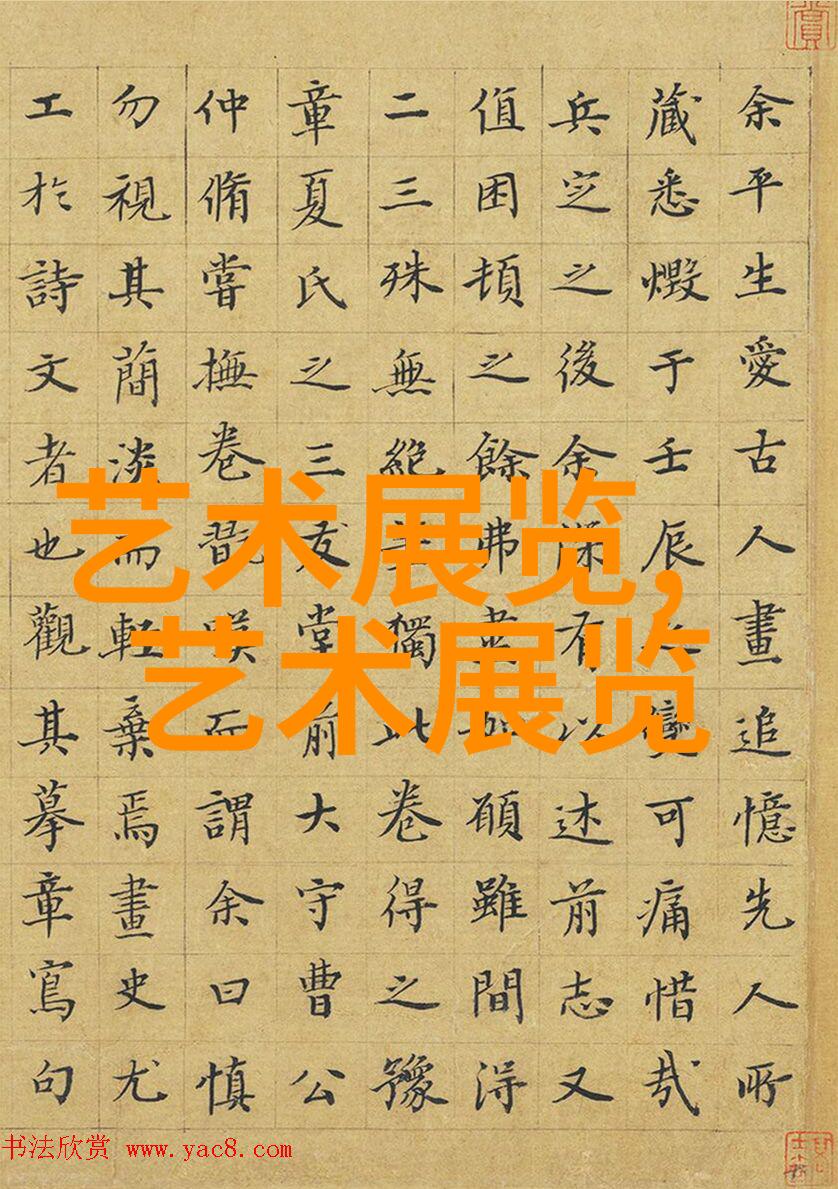 余平生愛古人畫追憶先人所
藏悉燬于壬辰之變可痛惜哉
兵㝎之後余深有以述前志又
值困頓之餘弗如願雖間得
二三殊無絕獨此卷得之豫
章夏氏之三友堂前大守曹公
仲脩嘗撫卷翫嘆而謂余曰慎
勿視其簡淡而輕棄焉畫史尤
工於詩文者也觀其摹章寫句
艺术展览,
艺术展览
书法欣赏 www.yac8.com